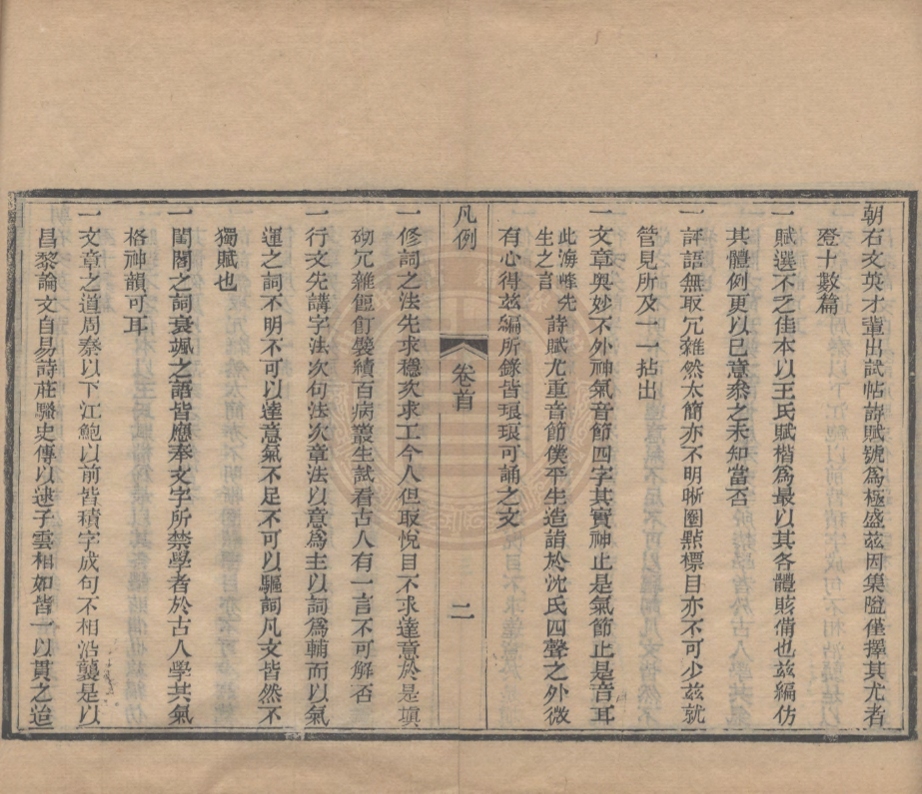 朝右文英才輩出試帖詩賦號為極盛茲因集隘僅擇其尤者
登十數篇
一賦選不乏佳本以王氏賦楷為最以其各體賅備也茲編仿
其體例更以已意叅之未知當否
一評語無取冗雜然太簡亦不明晰圈點標目亦不可少茲就
管見所及一一拈出
一文章奥妙不外神氣音節四字其實神止是氣節止是音耳
此海峰先生之言詩賦尤重音節僕平生造詣於沈氏四聲之外微
有心得茲編所錄皆琅琅可誦之文
凡例
卷首
二
一修詞之法先求穩次求工今人但取悅目不求達意於是塡
砌冗雜餖飣襞績百病叢生試看古人有一言不可解否
一行文先講字法次句法次章法以意為主以詞為輔而以氣
運之詞不明不可以達意氣不足不可以驅詞凡文皆然不
獨賦也
一閨閣之詞衰颯之語皆應奉文字所禁學者於古人學其氣
格神韻可耳
一文章之道周秦以下江鮑以前皆積字成句不相沿襲是以
昌黎論文自易詩莊騷史傳以逮子雲相如皆一以貫之迨